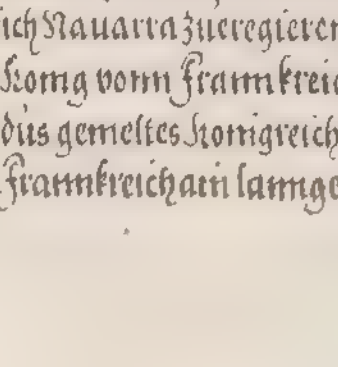 ich Nauarra zueregieren
König vonn Frannkreic
düs gemeltes Königreich
Frannkreich ain lannge